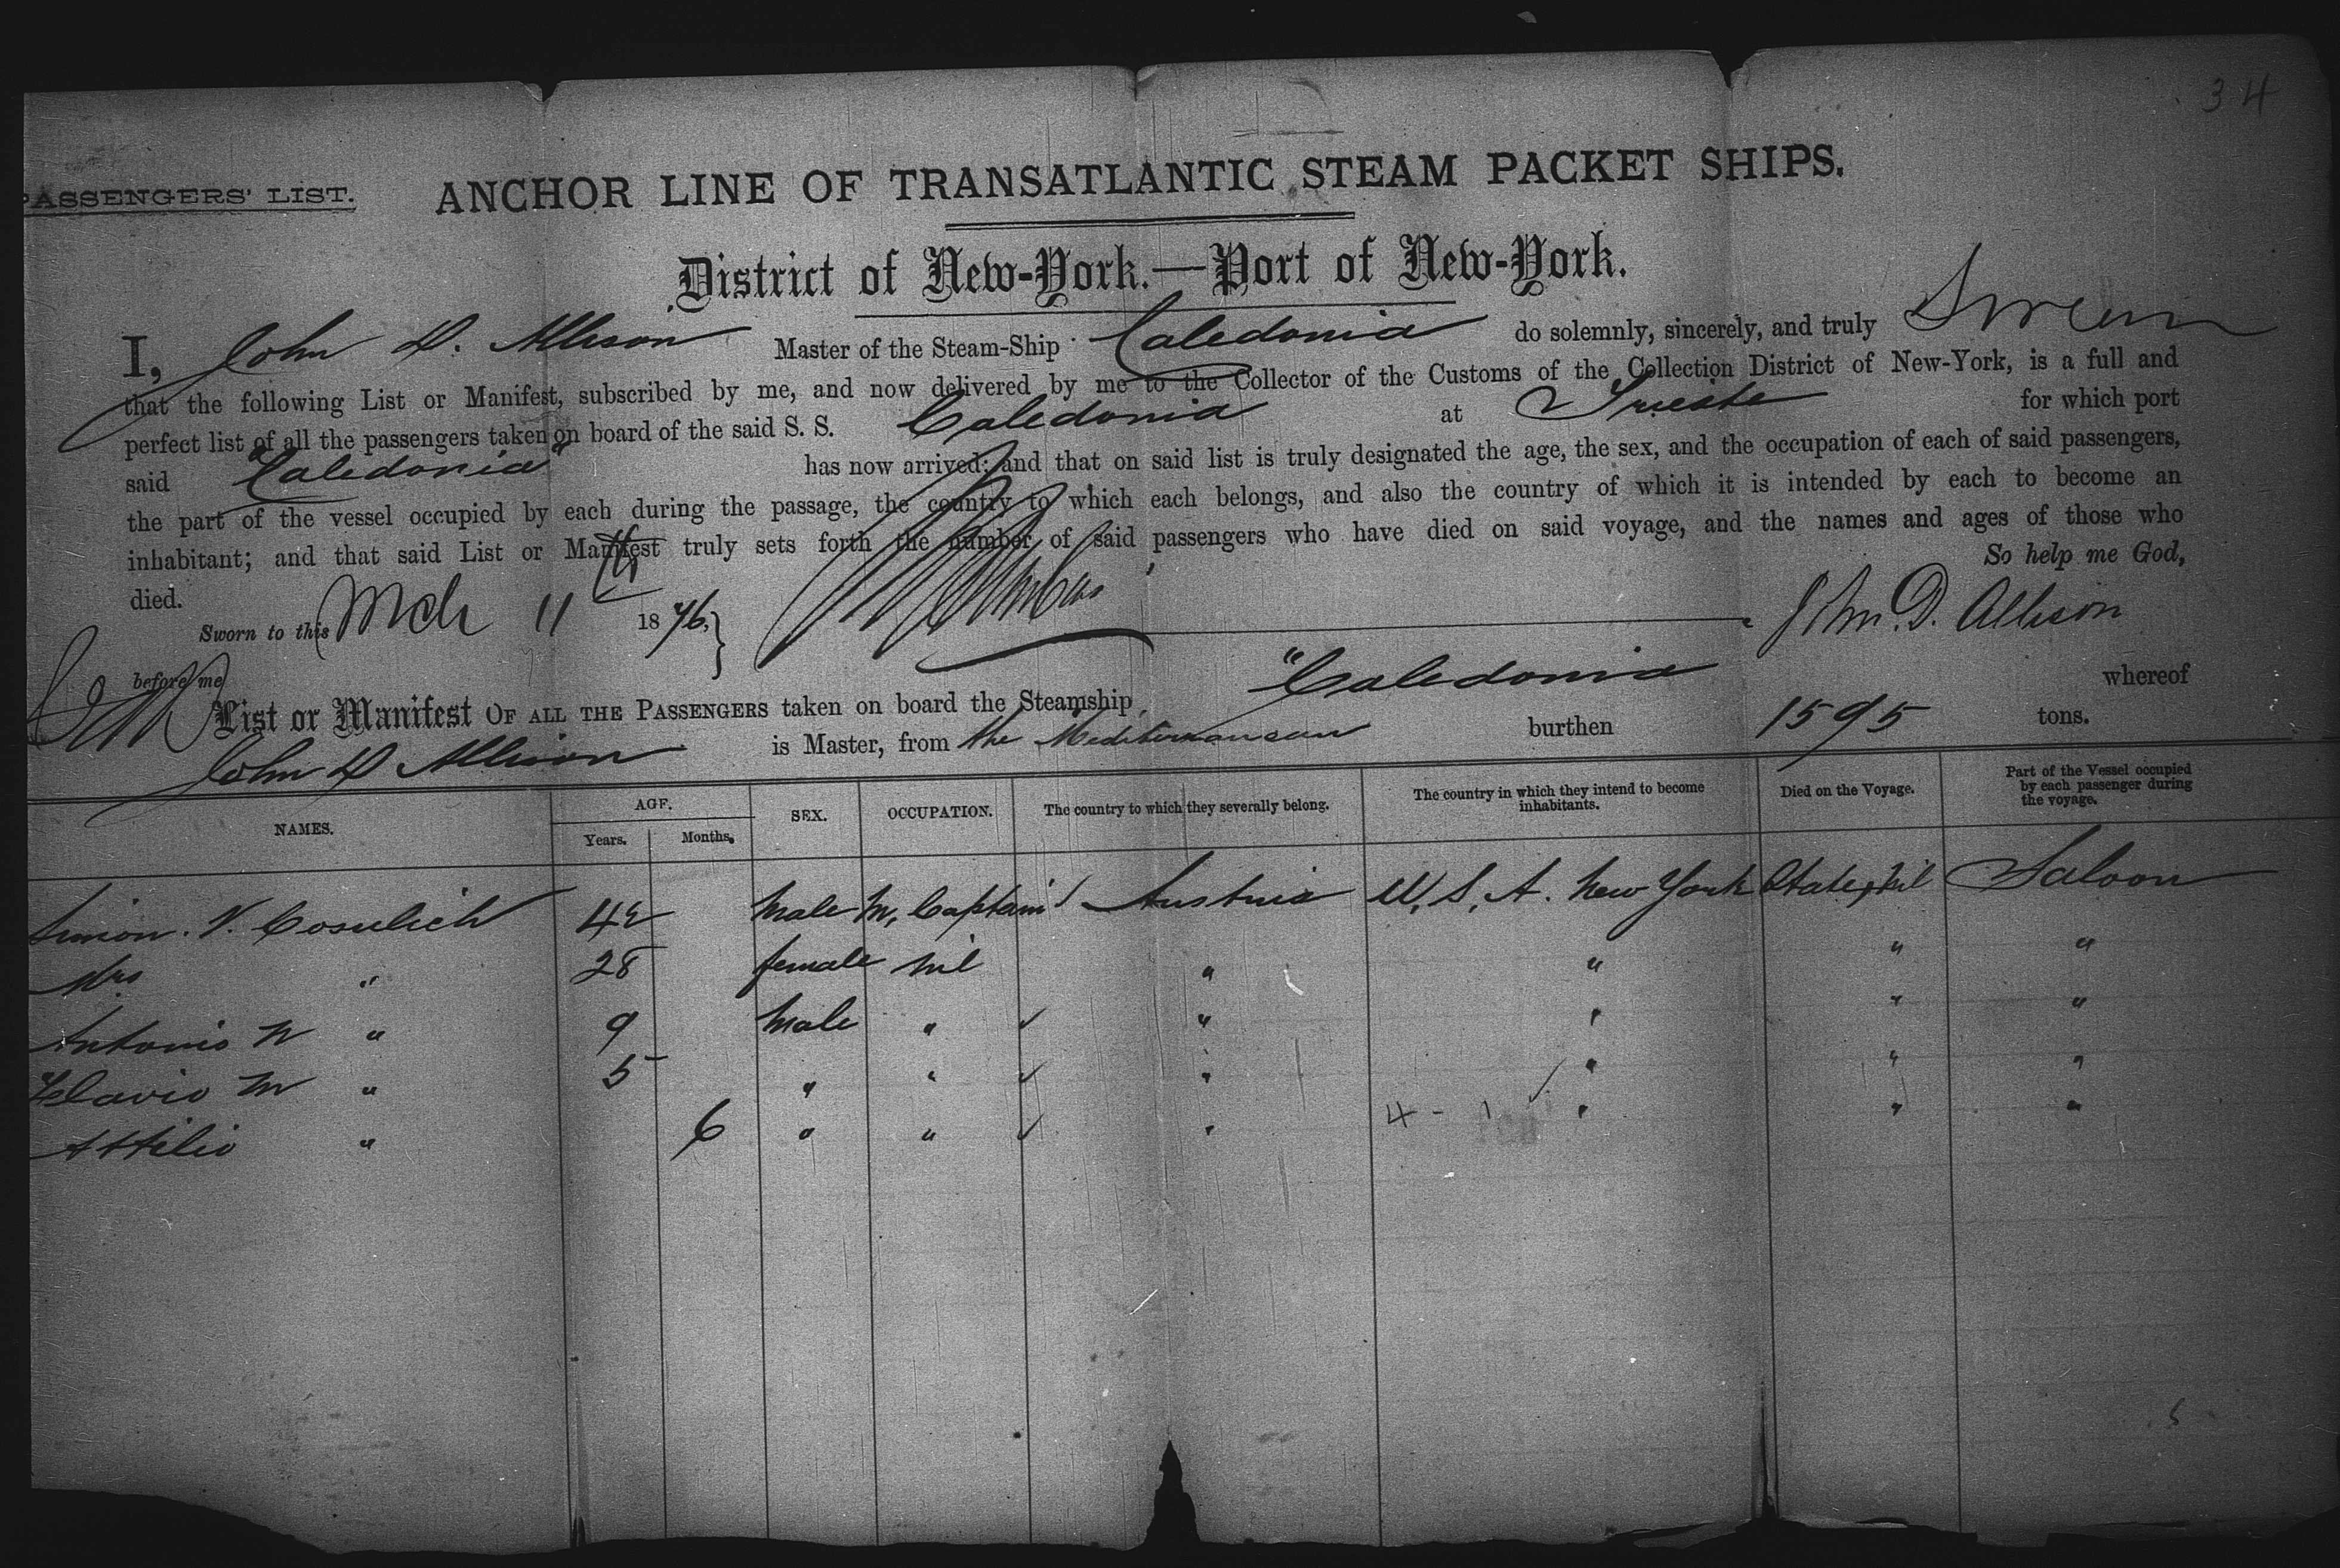 34
PASSENGERS' LIST. ANCHOR LINE OF TRANSATLANTIC STEAM PACKET SHIPS.
District of New-York.—Port of New-York.
I, John D. Allison Master of the Steam-Ship Caledonia do solemnly, sincerely, and truly Swear
that the following List or Manifest, subscribed by me, and now delivered by me to the Collector of the Customs of the Collection District of New-York, is a full and
perfect list of all the passengers taken on board of the said S. S. Caledonia at Trieste for which port
said "Caledonia" has now arrived; and that on said list is truly designated the age, the sex, and the occupation of each of said passengers,
the part of the vessel occupied by each during the passage, the country to which each belongs, and also the country of which it is intended by each to become an
inhabitant; and that said List or Manifest truly sets forth the number of said passengers who have died on said voyage, and the names and ages of those who
died. So help me God,
Sworn to this Mch 11th 1876, John D. Allison
before me
List or Manifest OF ALL THE PASSENGERS taken on board the Steamship "Caledonia whereof
John D Allison is Master, from the Mediterranean burthen 1595 tons.
NAMES. AGE. Years. Months. SEX. OCCUPATION. The country to which they severally belong. The country in which they intend to become inhabitants. Died on the Voyage. Part of the Vessel occupied by each passenger during the voyage.
Simon. V. Cosulich 42 Male M. Captain Austria U. S. A. New York State, Nil Saloon
Mrs " 28 female nil " " " "
Antonio N " 9 Male " " " " "
Flavio M " 5 " " " " " "
Attilio " 6 " " " 4 - 1 " " "